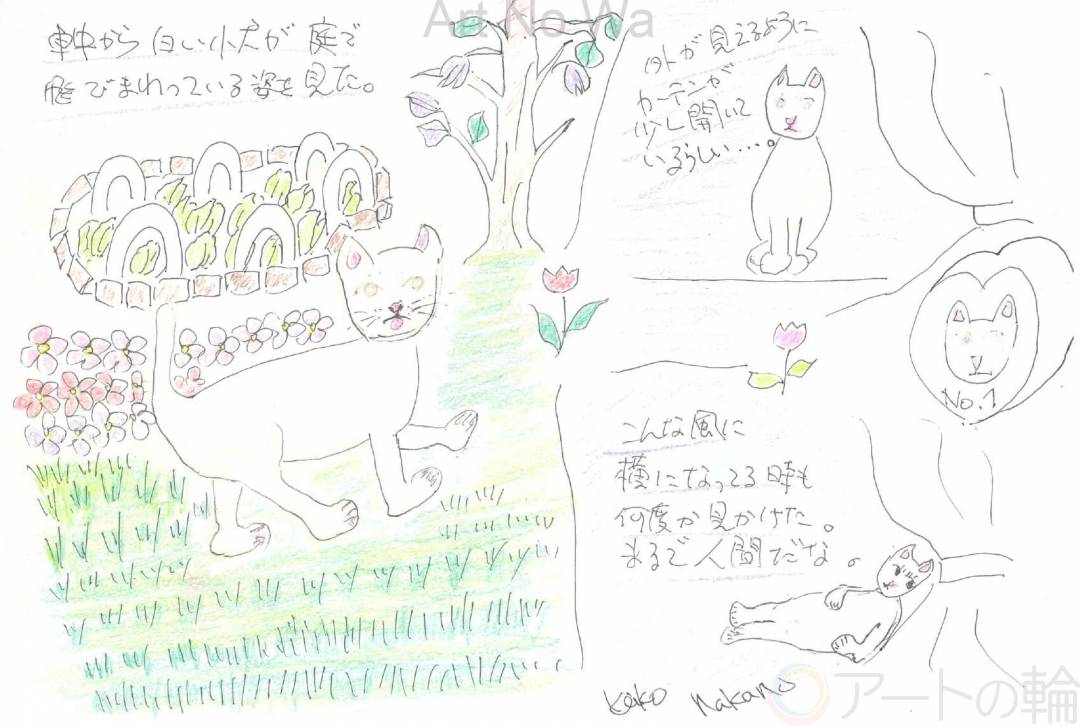 車中から白い小犬が庭で
飛びまわっている姿を見た。
Art No Wa
外が見えるように
カーテンが
少し開いて
いるらしい…。
No.1
こんな風に
横になってる時も
何度か見かけた。
まるで人間だな。
Keiko Nakano
アートの輪